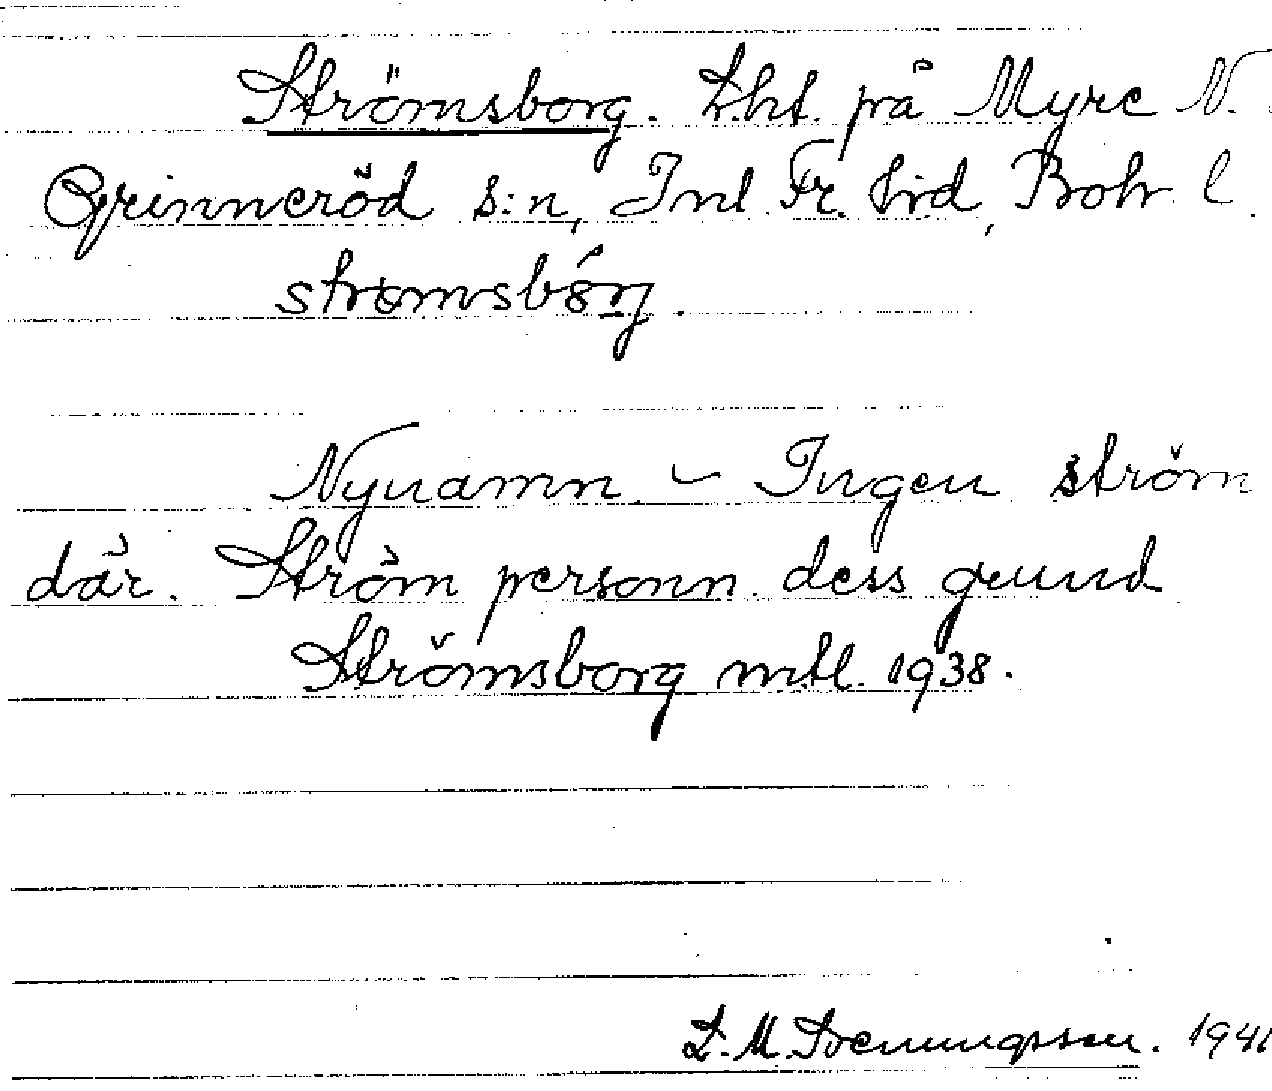 Strömsborg. Lht. på Myre N.
Grinneröd s:n, Inl. Fr. hrd, Boh l.
strömsbórj.
Nynamn – Ingen ström
där. Ström personn. dess grund
Strömsborg mtl. 1938.
L. M. Svenungsson. 1941